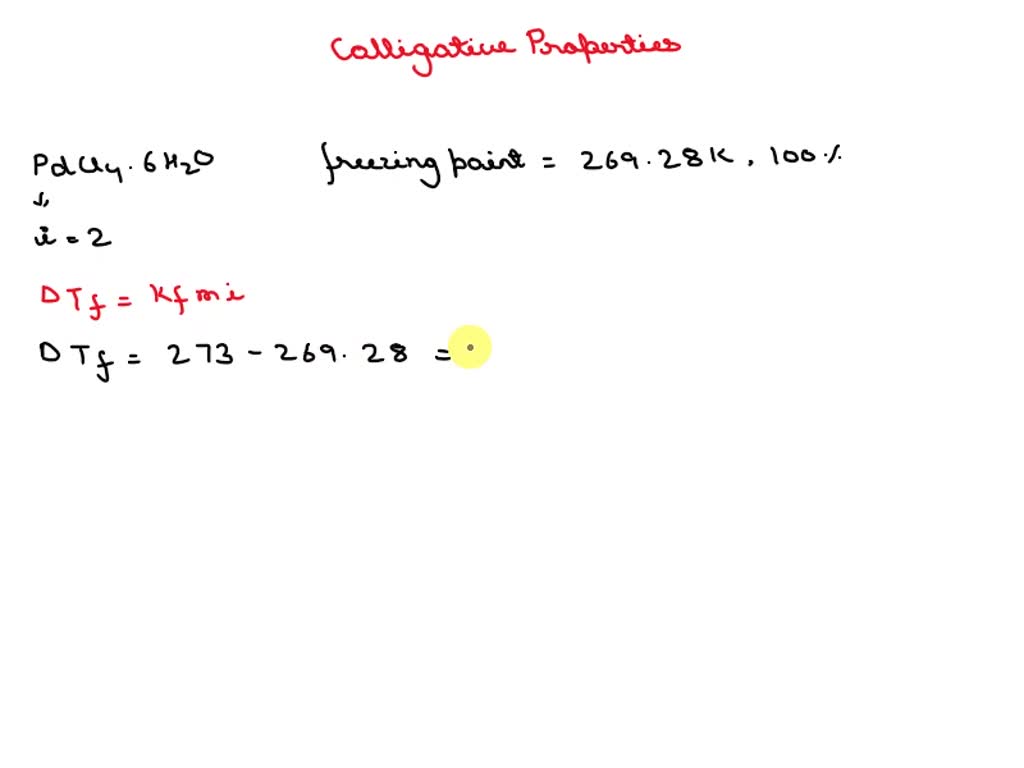 Colligative Properties
PdCl4.6H2O freezing point = 269.28K, 100%
↓
i = 2
DTf = Kf m i
DTf = 273 - 269.28 =